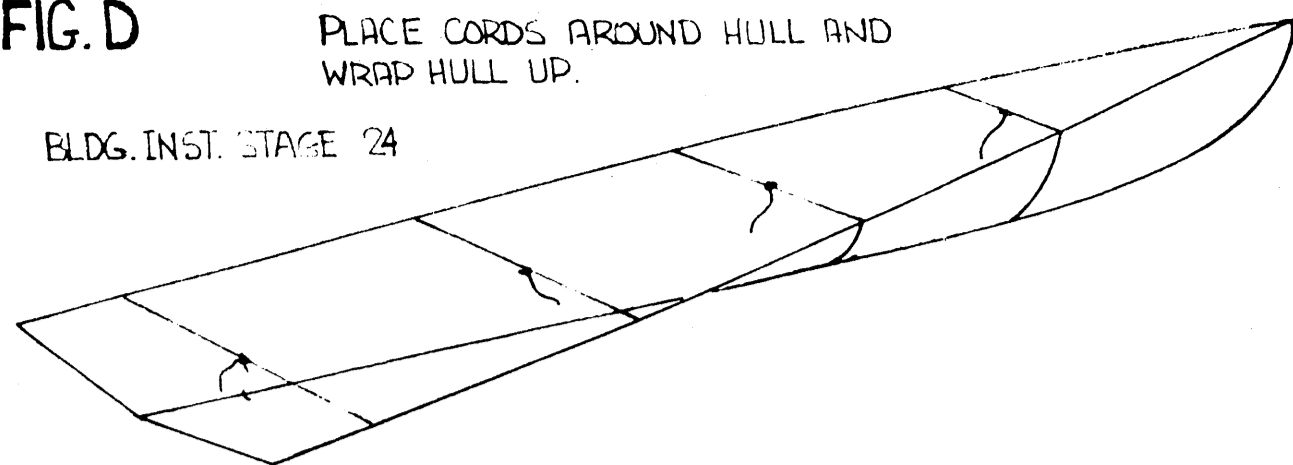 FIG. D
PLACE CORDS AROUND HULL AND
WRAP HULL UP.
BLDG. INST. STAGE 24